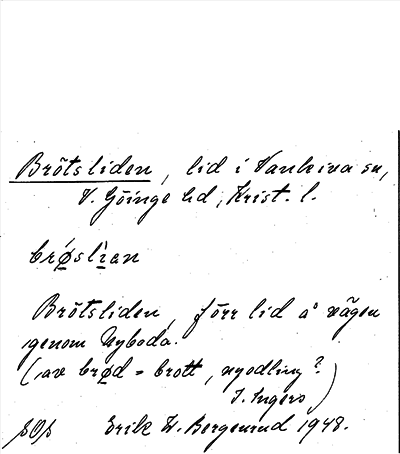 Brötsliden, lid i Vankiva sn,
V. Göinge hd, Krist. l.
brø̀slìan
Brötsliden, förr lid å vägen
genom Nyboda.
(av brød = brott, nyodling?
I. Ingers)
Erik W. Bergenrud 1948.